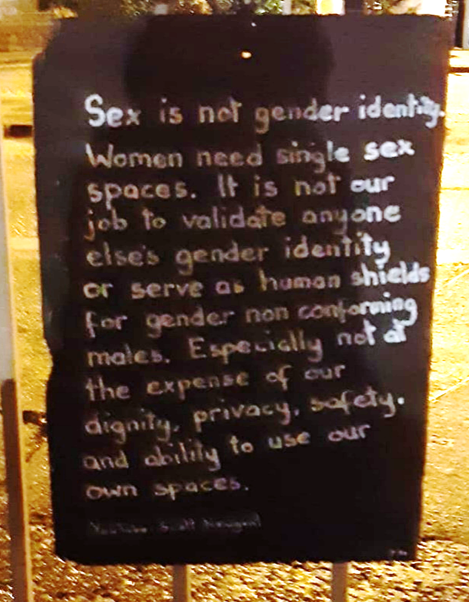 Sex is not gender identity.
Women need single sex
spaces. It is not our
job to validate anyone
else's gender identity
or serve as human shields
for gender non conforming
males. Especially not at
the expense of our
dignity, privacy, safety.
and ability to use our
own spaces.